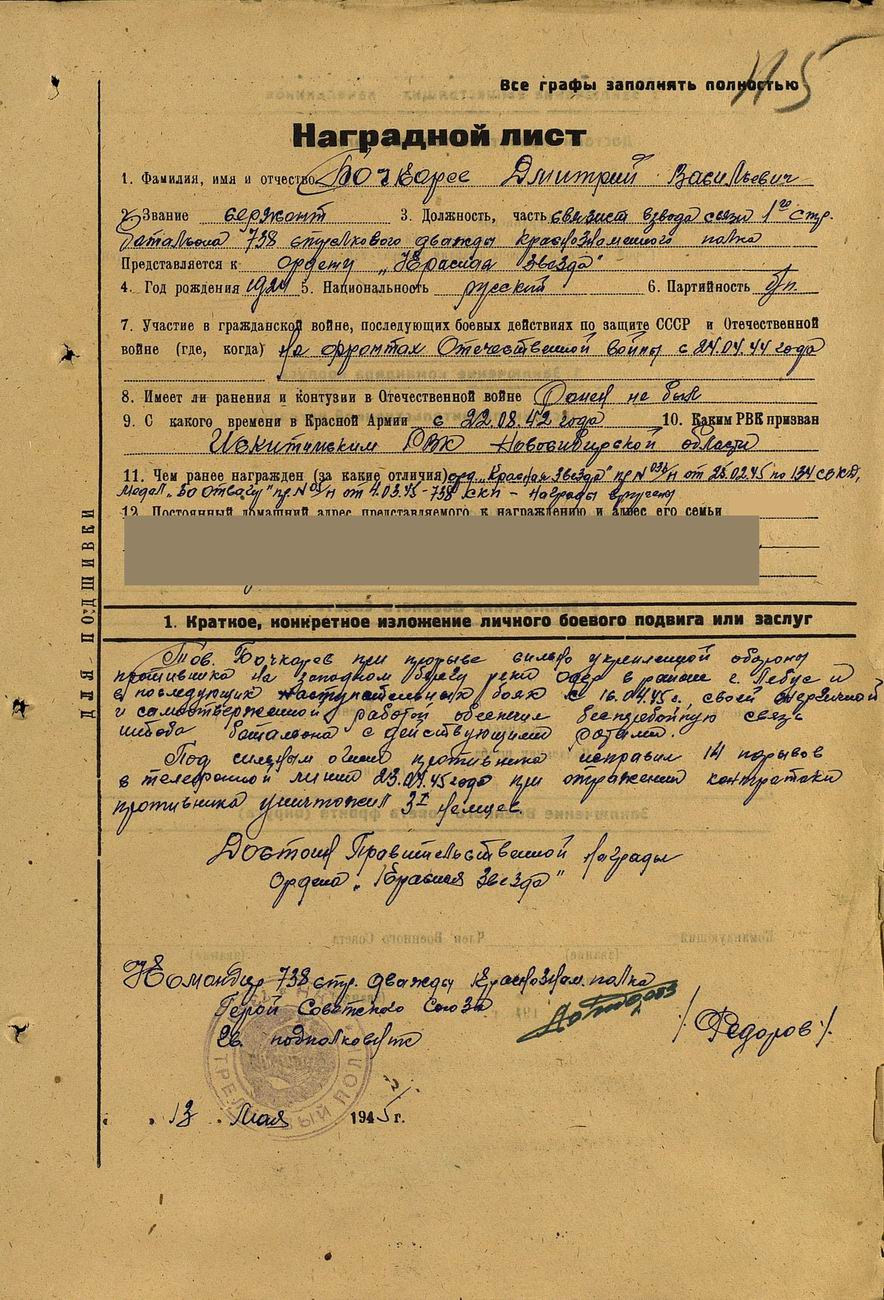 Все графы заполнять полностью
Наградной лист
1. Фамилия, имя и отчество Бочкарев Дмитрий Васильевич
2. Звание сержант 3. Должность, часть связист взвода связи 1го стр.
батальона 738 стрелкового дважды краснознаменного полка
Представляется к ордену „Красная Звезда"
4. Год рождения 5. Национальность русский 6. Партийность б/п.
7. Участие в гражданской войне, последующих боевых действиях по защите СССР и Отечественной
войне (где, когда) На фронтах Отечественной войны с 24.04.44 года
8. Имеет ли ранения и контузии в Отечественной войне Ранен не был
9. С какого времени в Красной Армии с 22.08.42 года 10. Каким РВК призван
Искитимским РВК Новосибирской области
11. Чем ранее награжден (за какие отличия) орд. „Красная Звезда" пр. № от 25.02.45 по 134 СККД,
медал. „За Отвагу" пр. № от 4.03.45 - 738 СКП - Награды вручены
12. Постоянный домашний адрес представляемого к награждению и адрес его семьи
ДЛЯ ПОДШИВКИ
1. Краткое, конкретное изложение личного боевого подвига или заслуг
Тов. Бочкарев при прорыве сильно укрепленной обороны
противника на западном берегу реки Одер в районе г. Лебус и
в последующих наступательных боях с 16.04.45 г., своей энергичной
и самоотверженной работой обеспечил бесперебойную связь
штаба батальона с действующими ротами.
Под сильным огнем противника исправил 14 порывов
в телефонной линии 23.04.45 года при отражении контратаки
противника уничтожил 3х немцев
Достоин Правительственной Награды
Ордена „Красная Звезда"
Командир 738 стр. дважды Краснознам. полка
Герой Советского Союза
Гв. подполковник /Федоров/.
13 Мая 1945 г.